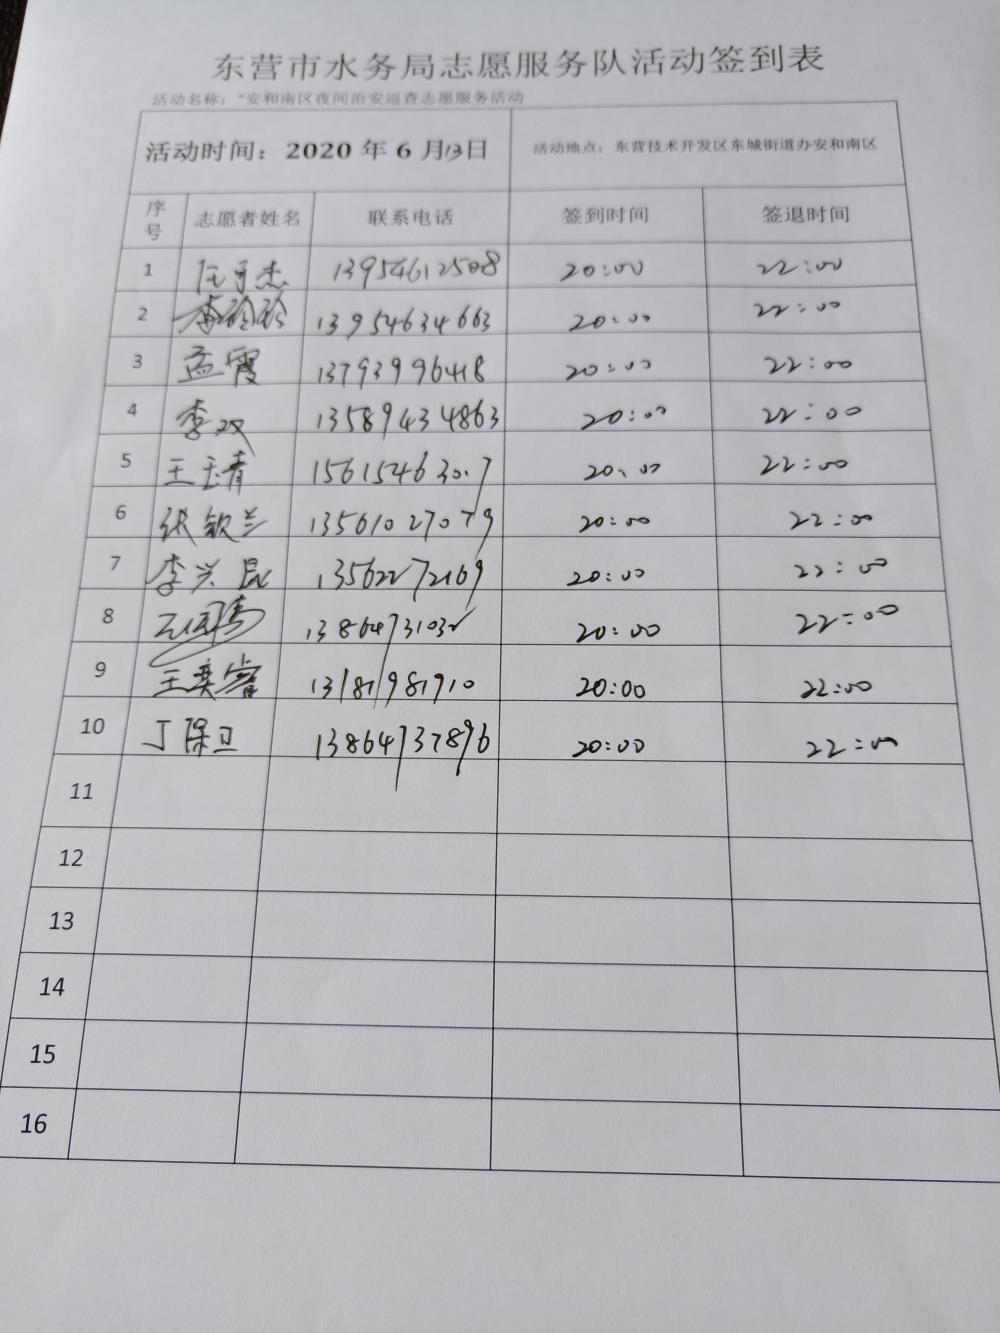 东营市水务局志愿服务队活动签到表
活动名称："安和南区夜间治安巡查志愿服务活动
活动时间：2020 年 6 月13日 活动地点：东营技术开发区东城街道办安和南区
序号 志愿者姓名 联系电话 签到时间 签退时间
1 13954612508 20:00 22:00
2 李玲玲 13954634663 20:00 22:00
3 孟霞 13793996418 20:00 22:00
4 李双 13589434863 20:00 22:00
5 王玉青 20:00 22:00
6 张钦兰 13561027079 20:00 22:00
7 李兴昆 13562272169 20:00 22:00
8 13864731032 20:00 22:00
9 王奕睿 13181981910 20:00 22:00
10 丁保卫 13864737896 20:00 22:00
11
12
13
14
15
16